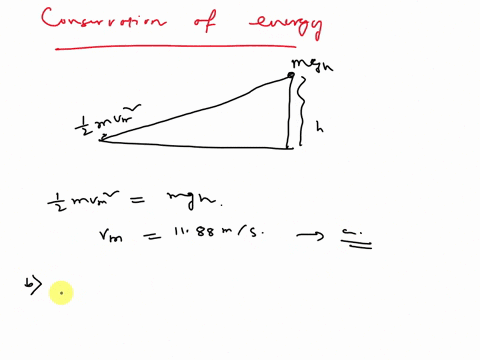 Conservation of energy
mgh
½ mvm²
h
½ mvm² = mgh.
vm = 11.88 m/s. → a.
b>